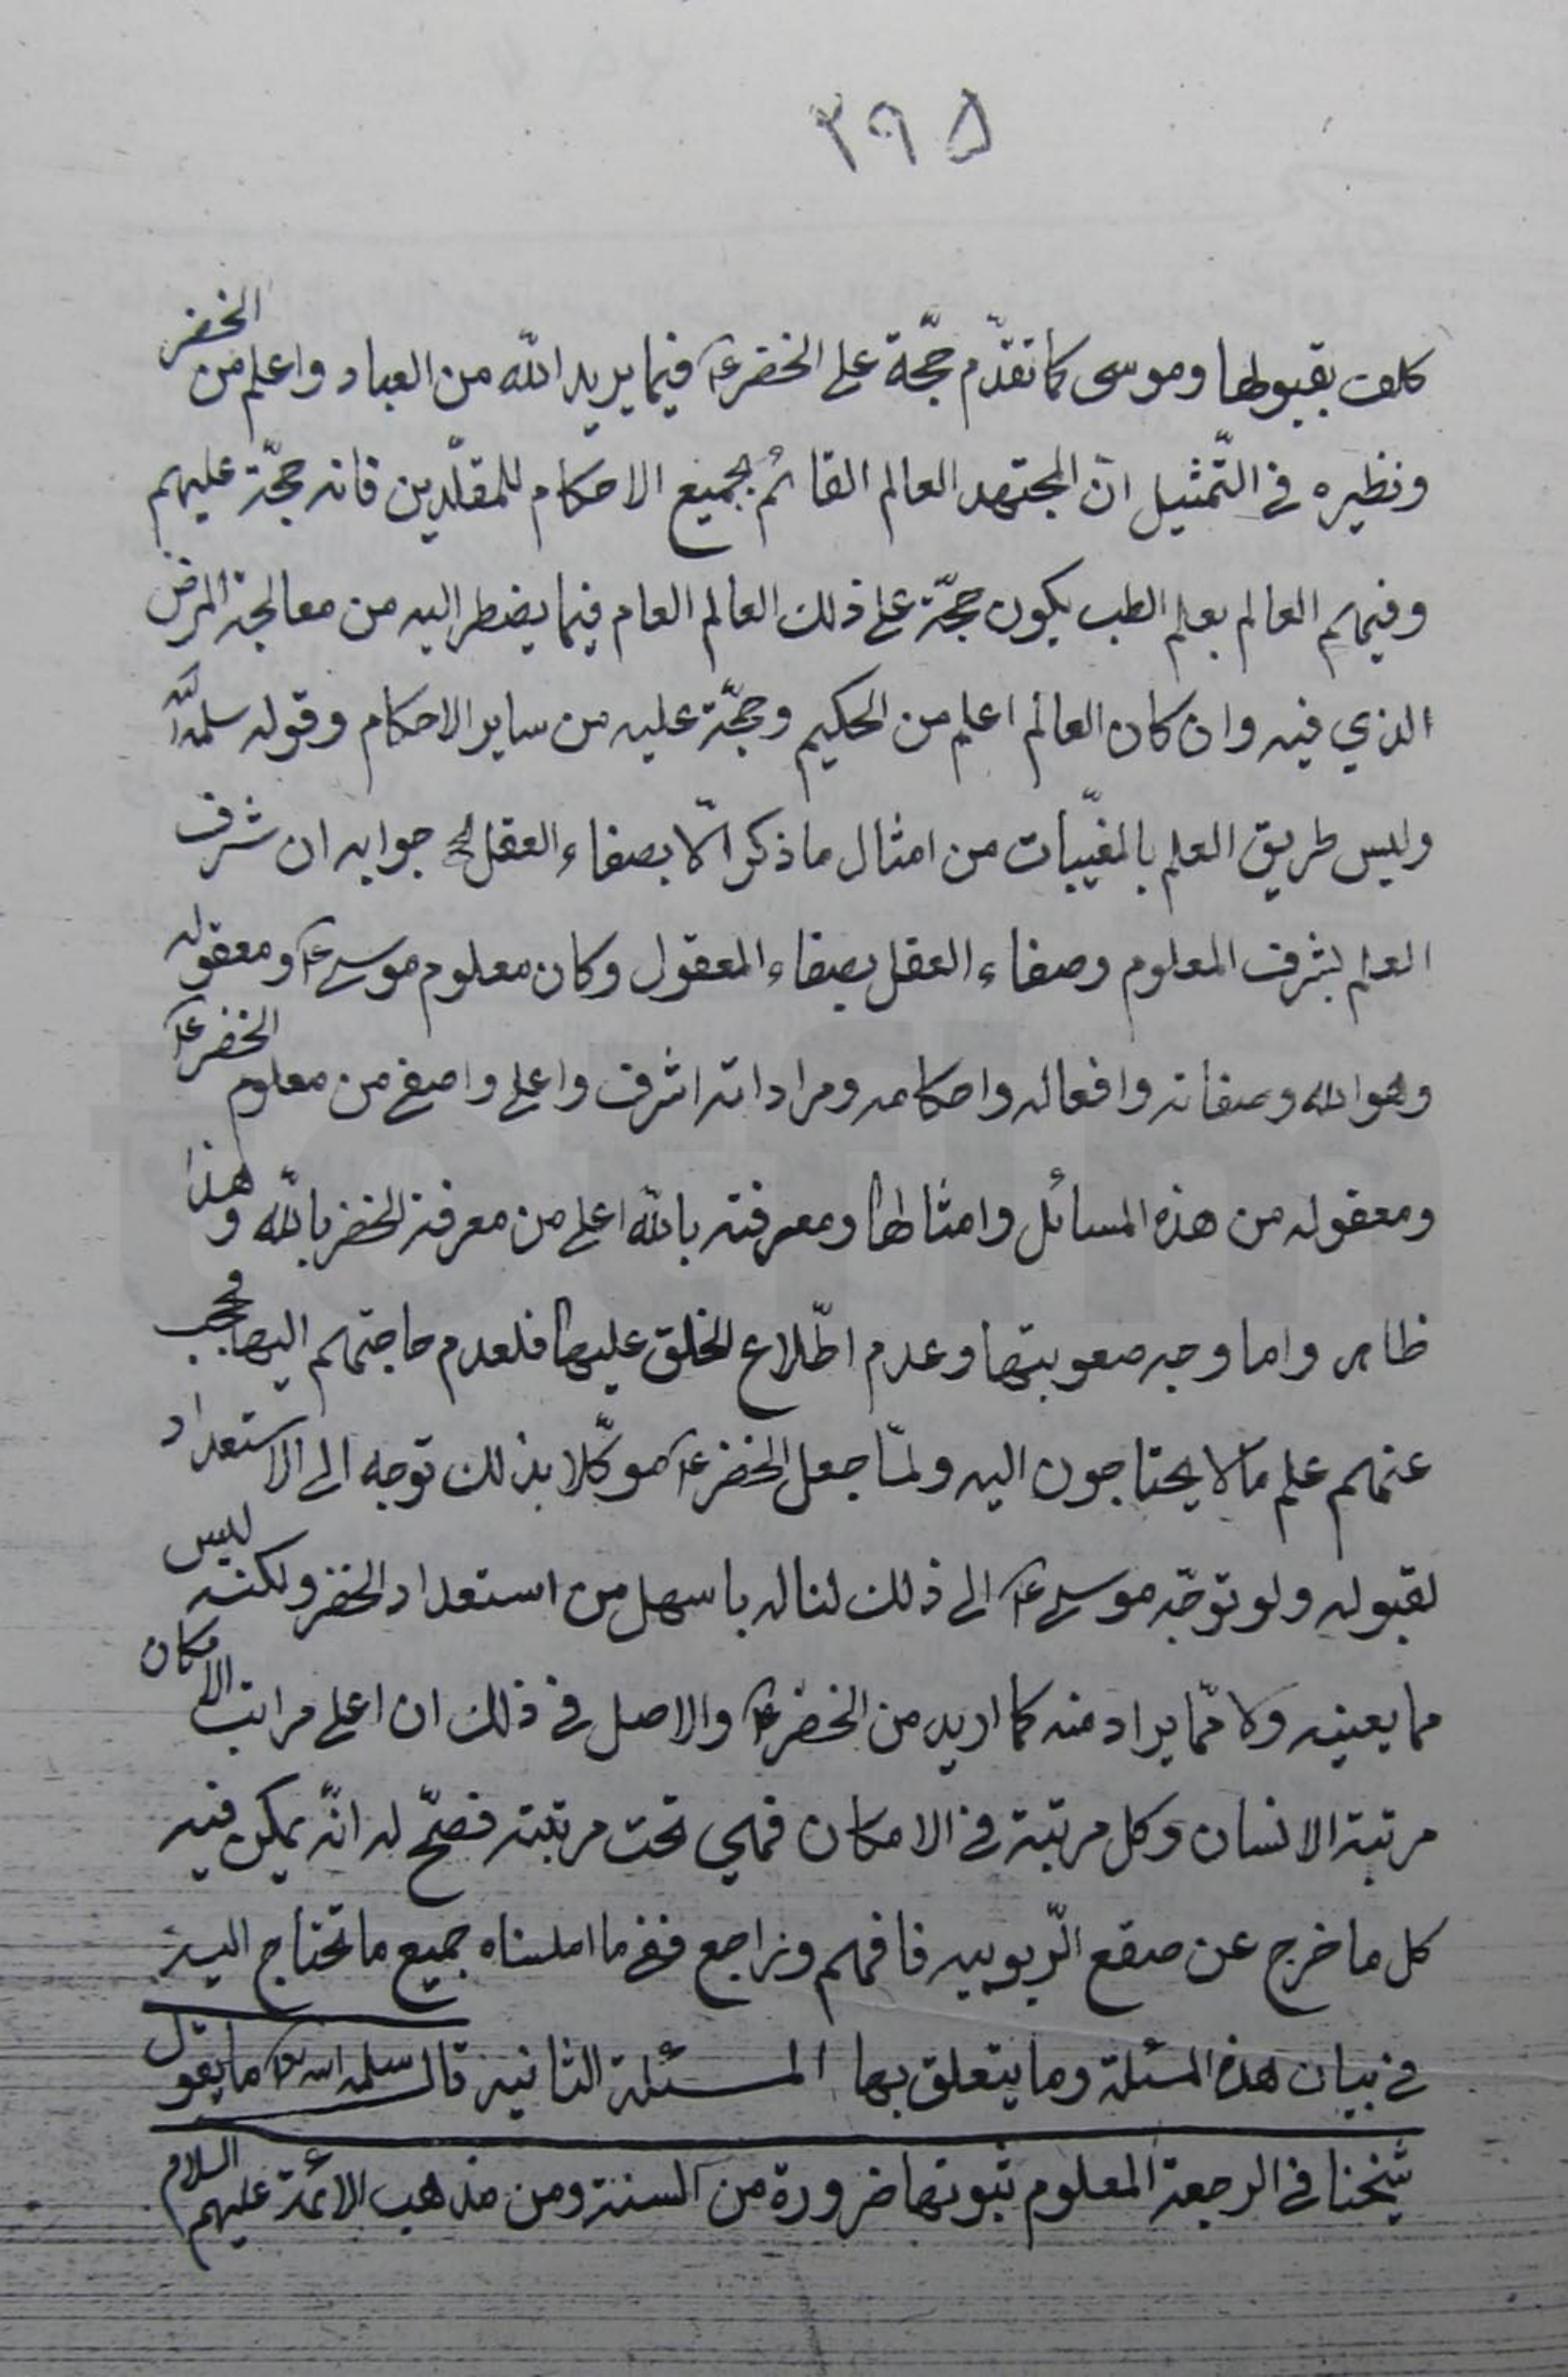 ٣٩٥
كلف بقبولها وموسى كما تقدّم حجّة على الخضر ع فيما يريد الله من العباد واعلم من الخضر
ونظيره فى التّمثيل انّ المجتهد العالم القائم بجميع الاحكام للمقلّدين فانه حجّة عليهم
وفيهم العالم بعلم الطب يكون حجّة على ذلك العالم العام فيما يضطر اليه من معالجة المرض
الذي فيه وان كان العالم اعلم من الحكيم وحجّة عليه من ساير الاحكام وقوله سلمه الله
وليس طريق العلم بالمغيّبات من امثال ما ذكر الّا بصفاء العقل الخ جوابه ان شرف
العلم بشرف المعلوم وصفاء العقل بصفاء المعقول وكان معلوم موسى ع ومعقوله
وهو الله وصفاته وافعاله واحكامه ومراداته اشرف واعلى واصفى من معلوم الخضر ع
ومعقوله من هذه المسائل وامثالها ومعرفته بالله اعلى من معرفة الخضر بالله وهذا
ظاهر واما وجه صعوبتها وعدم اطّلاع الخلق عليها فلعدم حاجتهم اليها فحجب
عنهم علم ما لا يحتاجون اليه ولمّا جعل الخضر ع موكّلا بذلك توجه الى الاستعداد
لقبوله ولو توجّه موسى ع الى ذلك لناله باسهل من استعداد الخضر ولكنه ليس
مما يعينه ولا ممّا يراد منه كما اريد من الخضر ع والاصل فى ذلك ان اعلى مراتب الامكان
مرتبة الانسان وكل مرتبة فى الامكان فهي تحت مرتبته فصحّ له انّه يمكن فيه
كل ما خرج عن صقع الرّبوبيه فافهم وراجع ففى ما املناه جميع ما تحتاج اليه
فى بيان هذه المسئلة وما يتعلق بها المسئلة الثانية قال سلمه الله ما يقول
شيخنا فى الرجعة المعلوم ثبوتها ضرورة من السنة ومن مذهب الائمة عليهم السلام